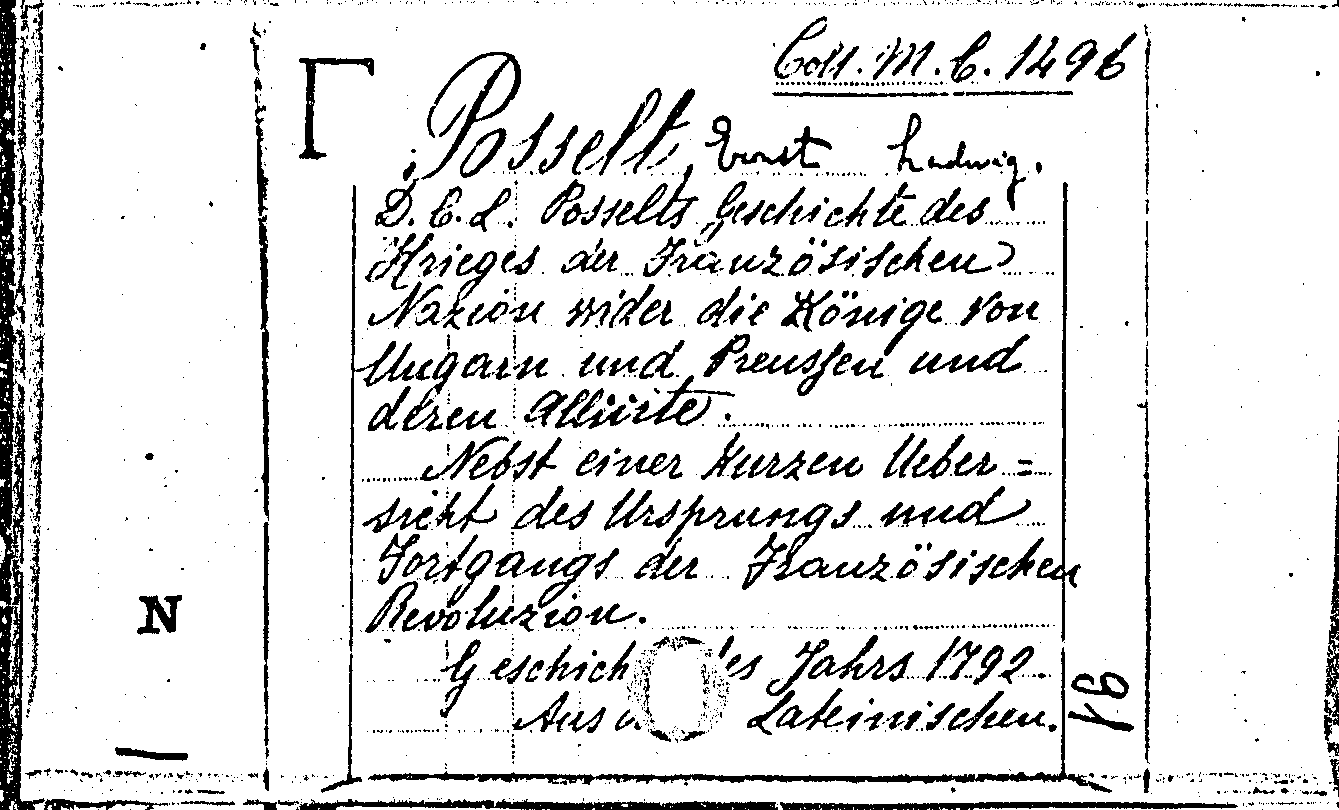 Coll. M. C. 1496
Γ
Posselt, Ernst Ludwig.
D. E. L. Posselts Geschichte des
Krieges der Französischen
Nazion wider die Könige von
Ungarn und Preussen und
deren Alliirte.
Nebst einer kurzen Ueber=
sicht des Ursprungs und
Fortgangs der Französischen
Revoluzion.
Geschich des Jahrs 1792.
Aus Lateinischen.
N